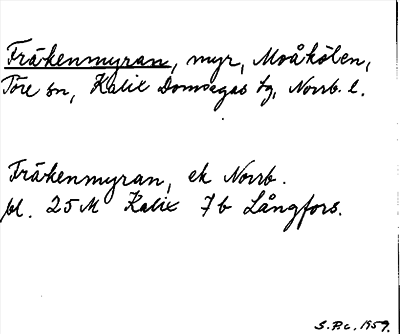 Fräkenmyran, myr, Moåkölen,
Töre sn, Kalix Domsagas tg, Norrb. l.
Fräkenmyran, ek Norrb.
bl. 25 M Kalix 7 b Långfors.
S.P:c. 1959.